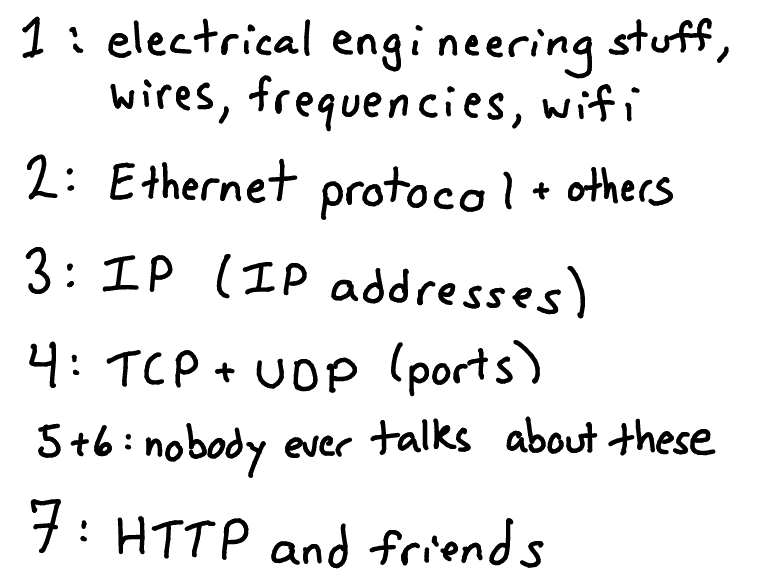 1: electrical engineering stuff,
wires, frequencies, wifi
2: Ethernet protocol + others
3: IP (IP addresses)
4: TCP + UDP (ports)
5+6: nobody ever talks about these
7: HTTP and friends